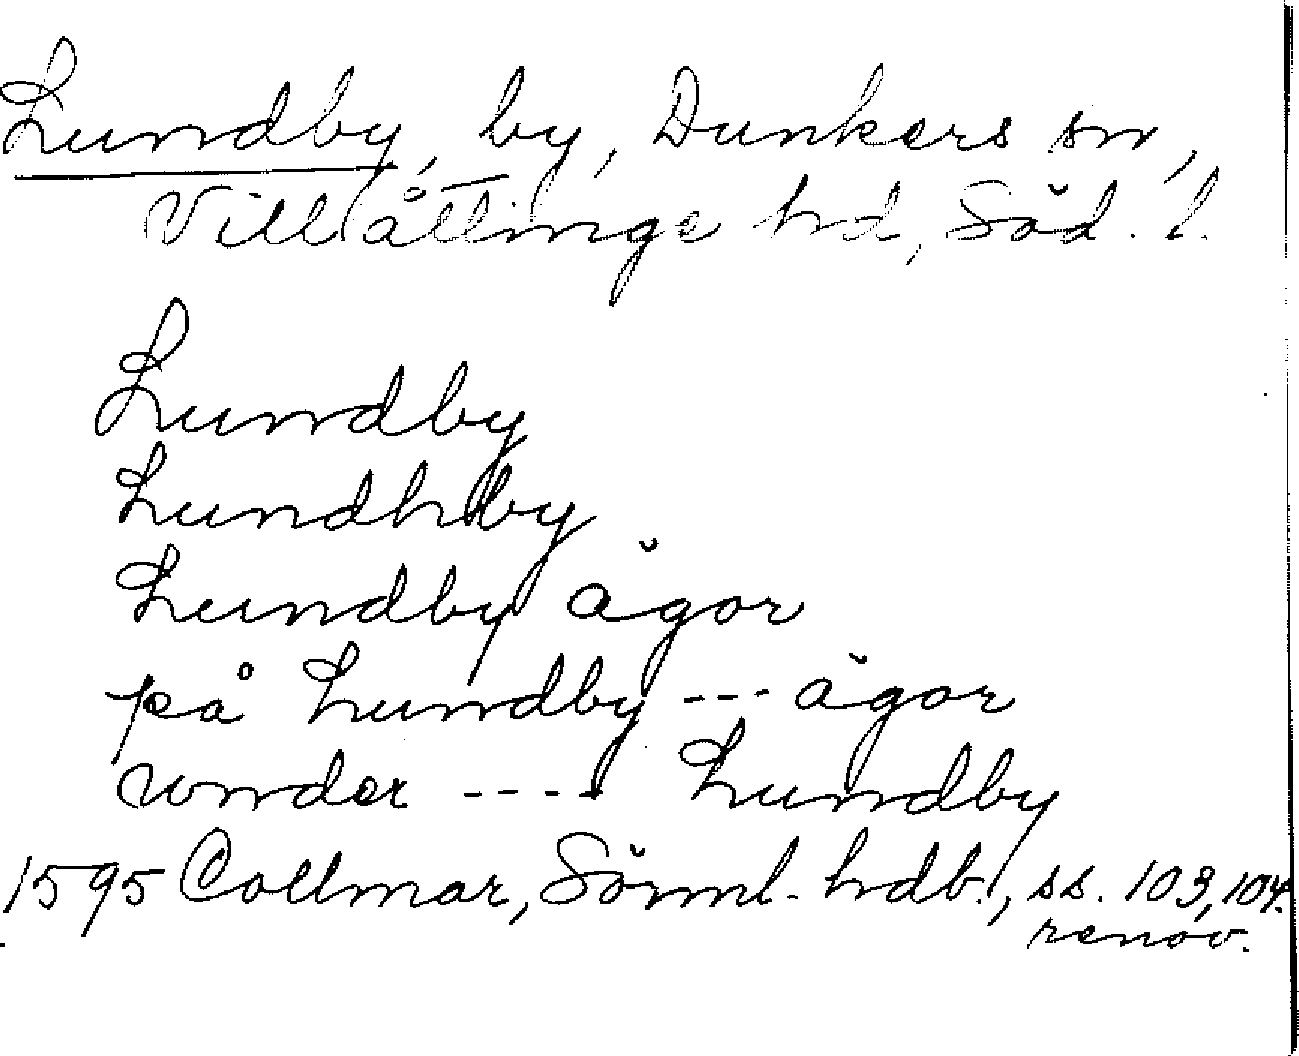 Lundby, by, Dunkers sn,
Villåttinge hd, Söd. l.
Lundby
Lundhby
Lundby ägor
på Lundby --- ägor
under ---- Lundby
1595 Collmar, Sörml. hdb., ss. 103, 104.
renov.